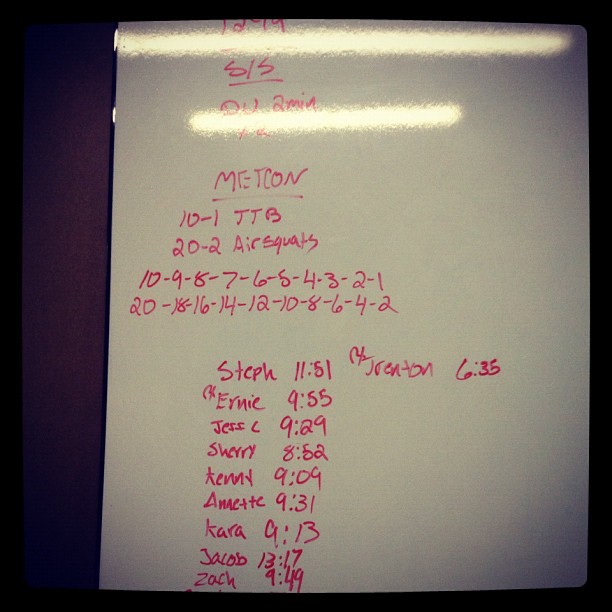 S/S
DU 2min
METCON
10-1 TTB
20-2 Airsquats
10-9-8-7-6-5-4-3-2-1
20-18-16-14-12-10-8-6-4-2
Steph 11:51 Rx Trenton 6:35
Rx Ernie 9:55
Jess C 9:29
Sherry 8:52
Kenny 9:09
Annette 9:31
Kara 9:13
Jacob 13:17
Zach 9:49